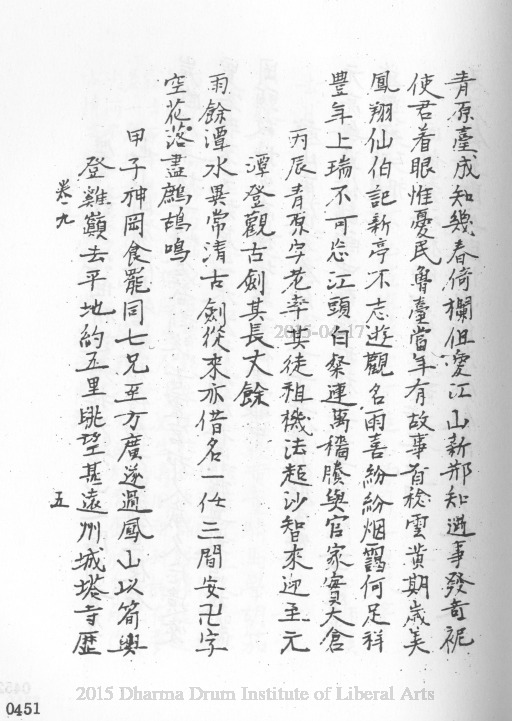 青原臺成知幾春倚欄但愛江山新那知遊事發奇
使君着眼惟憂民魯臺當年有故事首稔雲黃期歲美
鳳翔仙伯記新亭不志遊觀名雨喜紛紛烟靄何足祥
豐年上瑞不可忘江頭白粲連萬檣賸與官家實大倉
丙辰青原宇老率其徒祖機法超沙智來迎至元
潭登觀古劍其長丈餘
雨餘潭水異常清古劍從來亦借名一任三間安卍字
空花落盡鷓鴣鳴
甲子神岡食罷同七兄至万廣遂過鳳山以筍輿
登雞巔去平地約五里眺望甚遠州城塔寺歷
卷九
五
2015-04-17
2015 Dharma Drum Institute of Liberal Arts
0451